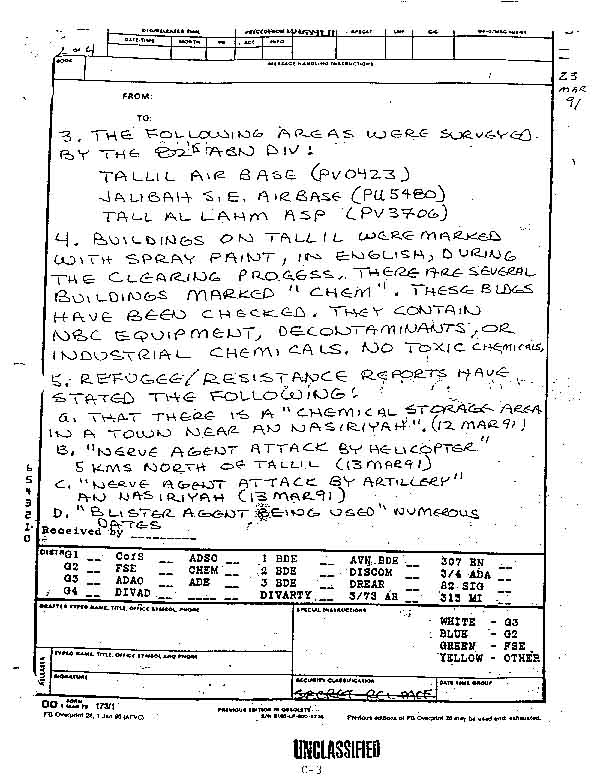 DTG/RELEASER TIME
DATE-TIME MONTH YR ACT INFO
2 of 4
BOOK
MESSAGE HANDLING INSTRUCTIONS
23
MAR
91
FROM:
TO:
3. THE FOLLOWING AREAS WERE SURVEYED
BY THE 82d ABN DIV:
TALLIL AIR BASE (PV0423)
JALIBAH S.E. AIRBASE (PU5480)
TALL AL LAHM ASP (PV3706)
4. BUILDINGS ON TALLIL WERE MARKED
WITH SPRAY PAINT, IN ENGLISH, DURING
THE CLEARING PROCESS. THERE ARE SEVERAL
BUILDINGS MARKED "CHEM". THESE BLDGS
HAVE BEEN CHECKED. THEY CONTAIN
NBC EQUIPMENT, DECONTAMINANTS, OR
INDUSTRIAL CHEMICALS. NO TOXIC CHEMICALS.
5. REFUGEE/RESISTANCE REPORTS HAVE
STATED THE FOLLOWING:
a. THAT THERE IS A "CHEMICAL STORAGE AREA
IN A TOWN NEAR AN NASIRIYAH". (12 MAR 91)
B. "NERVE AGENT ATTACK BY HELICOPTER"
5 KMS NORTH OF TALLIL (13 MAR 91)
C. "NERVE AGENT ATTACK BY ARTILLERY"
AN NASIRIYAH (13 MAR 91)
D. "BLISTER AGENT BEING USED" NUMEROUS
DATES
6
5
4
3
2
1
0
Received by ________
DISTR G1 __ CofS __ ADSO __ 1 BDE __ AVN BDE __ 307 EN __
G2 __ FSE __ CHEM __ 2 BDE __ DISCOM __ 3/4 ADA __
G3 __ ADAO __ ADE __ 3 BDE __ DREAR __ 82 SIG __
G4 __ DIVAD __ ____ __ DIVARTY __ 3/73 AR __ 313 MI __
DRAFTER TYPED NAME, TITLE, OFFICE SYMBOL, PHONE
SPECIAL INSTRUCTIONS
WHITE - G3
BLUE - G2
GREEN - FSE
YELLOW - OTHER
RELEASER
TYPED NAME, TITLE, OFFICE SYMBOL AND PHONE
SIGNATURE
SECURITY CLASSIFICATION
DATE TIME GROUP
DD FORM 1 MAR 79 173/1
PREVIOUS EDITION IS OBSOLETE
FB Overprint 28, 1 Jan 90 (AFVC)
Previous editions of FB Overprint 28 may be used until exhausted.
UNCLASSIFIED
C-3